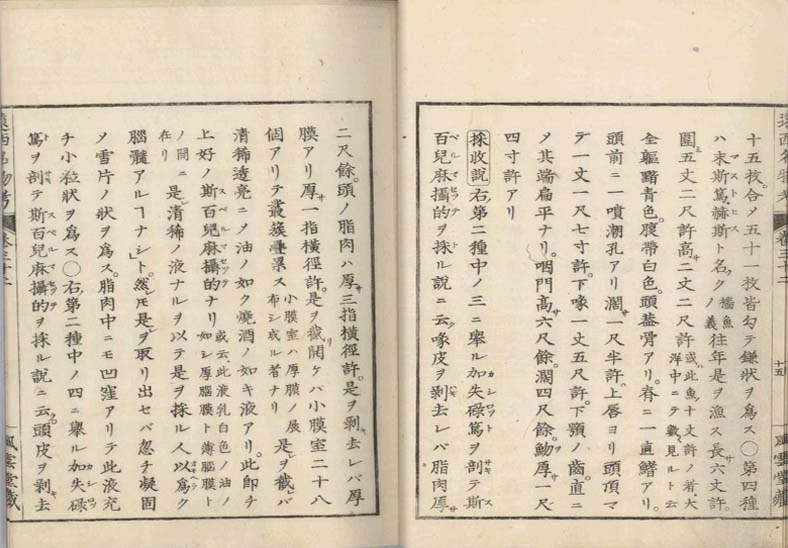 十五枚。合メ五十一枚皆勾テ鎌状ヲ爲ス〇第四種
ハ末斯篤赫斯ト名ク 檣魚ノ義 往年是ヲ漁ス長六丈許。
マストヒス
圍五丈二尺許高二丈二尺許 或此魚十丈許ノ者大洋中ニテ數見ルト云
全軀黯青色。腹帶白色。頭蓋骨アリ。脊ニ一直鰭アリ。
頭前ニ一噴潮孔アリ濶一尺半許。上唇ヨリ頭頂マ
デ一丈一尺七寸許。下喙一丈五尺許。下顎ノ齒。直ニ
メ其端扁平ナリ。咽門高六尺餘。濶四尺餘。舌厚一尺
四寸許アリ
採收説 右第二種中ノ三ニ舉ル加失碌篤ヲ剖テ斯
カシロット
百兒麻攝的ヲ採ル説ニ云喙皮ヲ剥去レバ脂肉厚
ペルマセッテ
遠西名物考
卷三十二
十五
風雲堂藏
二尺餘。頭ノ脂肉ハ厚三指横徑許。是ヲ剥去レバ厚
膜アリ厚一指横徑許。是ヲ截開ケバ小膜室二十八
個アリテ叢簇疊累ス 小膜室ハ厚膜ノ展布シ成ル者ナリ 是ヲ截バ
清稀透亮ニメ油ノ如ク燒酒ノ如キ液アリ。此即チ
上好ノ斯百兒麻攝的ナリ 或云此液乳白色ノ油ノ如シ厚腦膜ト薄腦膜トノ間ニ在リ
スペルマセッテ
是清稀ノ液ナルヲ以テ是ヲ採ル人以爲ク
腦髓アルヿナシト。然ㇾ𪜈是ヲ取リ出セバ忽チ凝固
メ雪片ノ状ヲ爲ス。脂肉中ニモ凹窪アリテ此液充
チ小粒状ヲ爲ス〇右第二種中ノ四ニ舉ル加失碌
カシロッ
篤ヲ剖テ斯百兒麻攝的ヲ採ル説ニ云。頭皮ヲ剥去
ト スペルマセッテ
遠西名物考
卷三十二
風雲堂藏